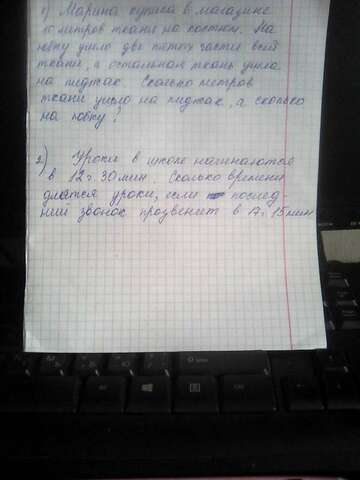 1) Марина купила в магазине
10 метров ткани на костюм. На
юбку ушло две пятых части всей
ткани, а остальная ткань ушла
на пиджак. Сколько метров
ткани ушло на пиджак, а сколько
на юбку?
2) Уроки в школе начинаются
в 12 г. 30 мин. Сколько времени
длятся уроки, если послед-
ний звонок прозвенит в 17 г. 15 мин